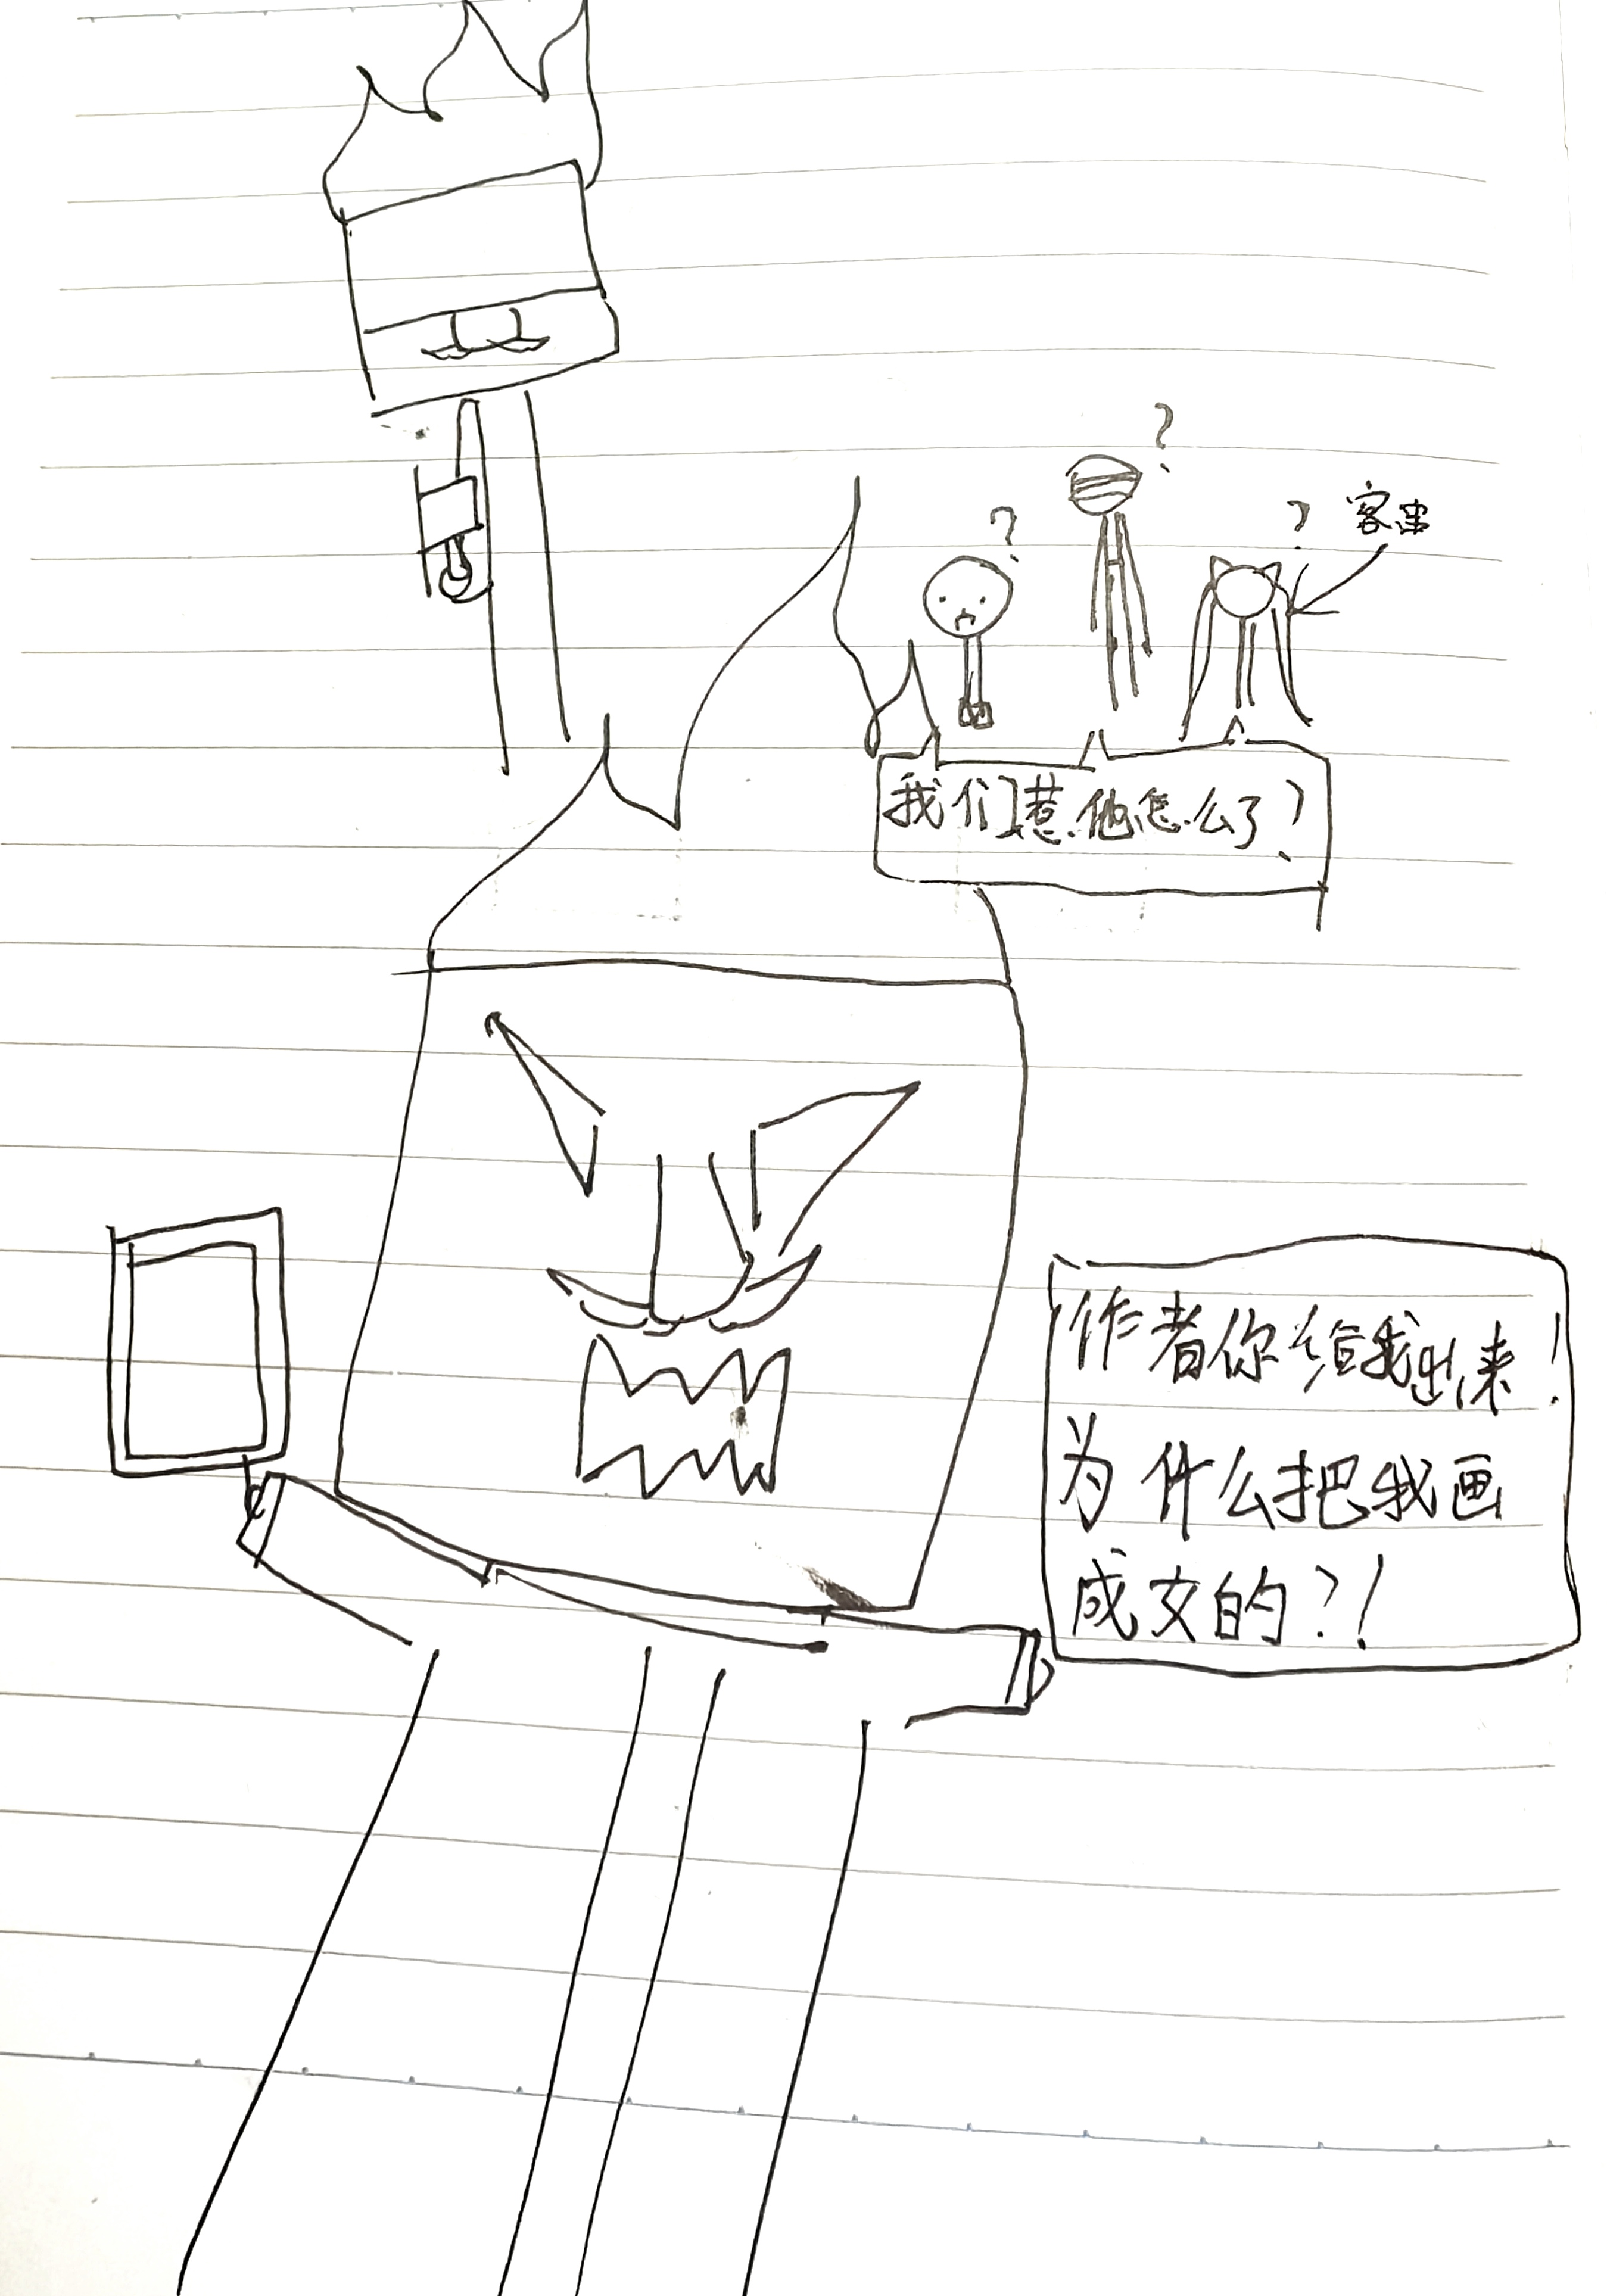 ?
?
?
客串
我们惹他怎么了?
作者你给我出来!
为什么把我画
成女的?!